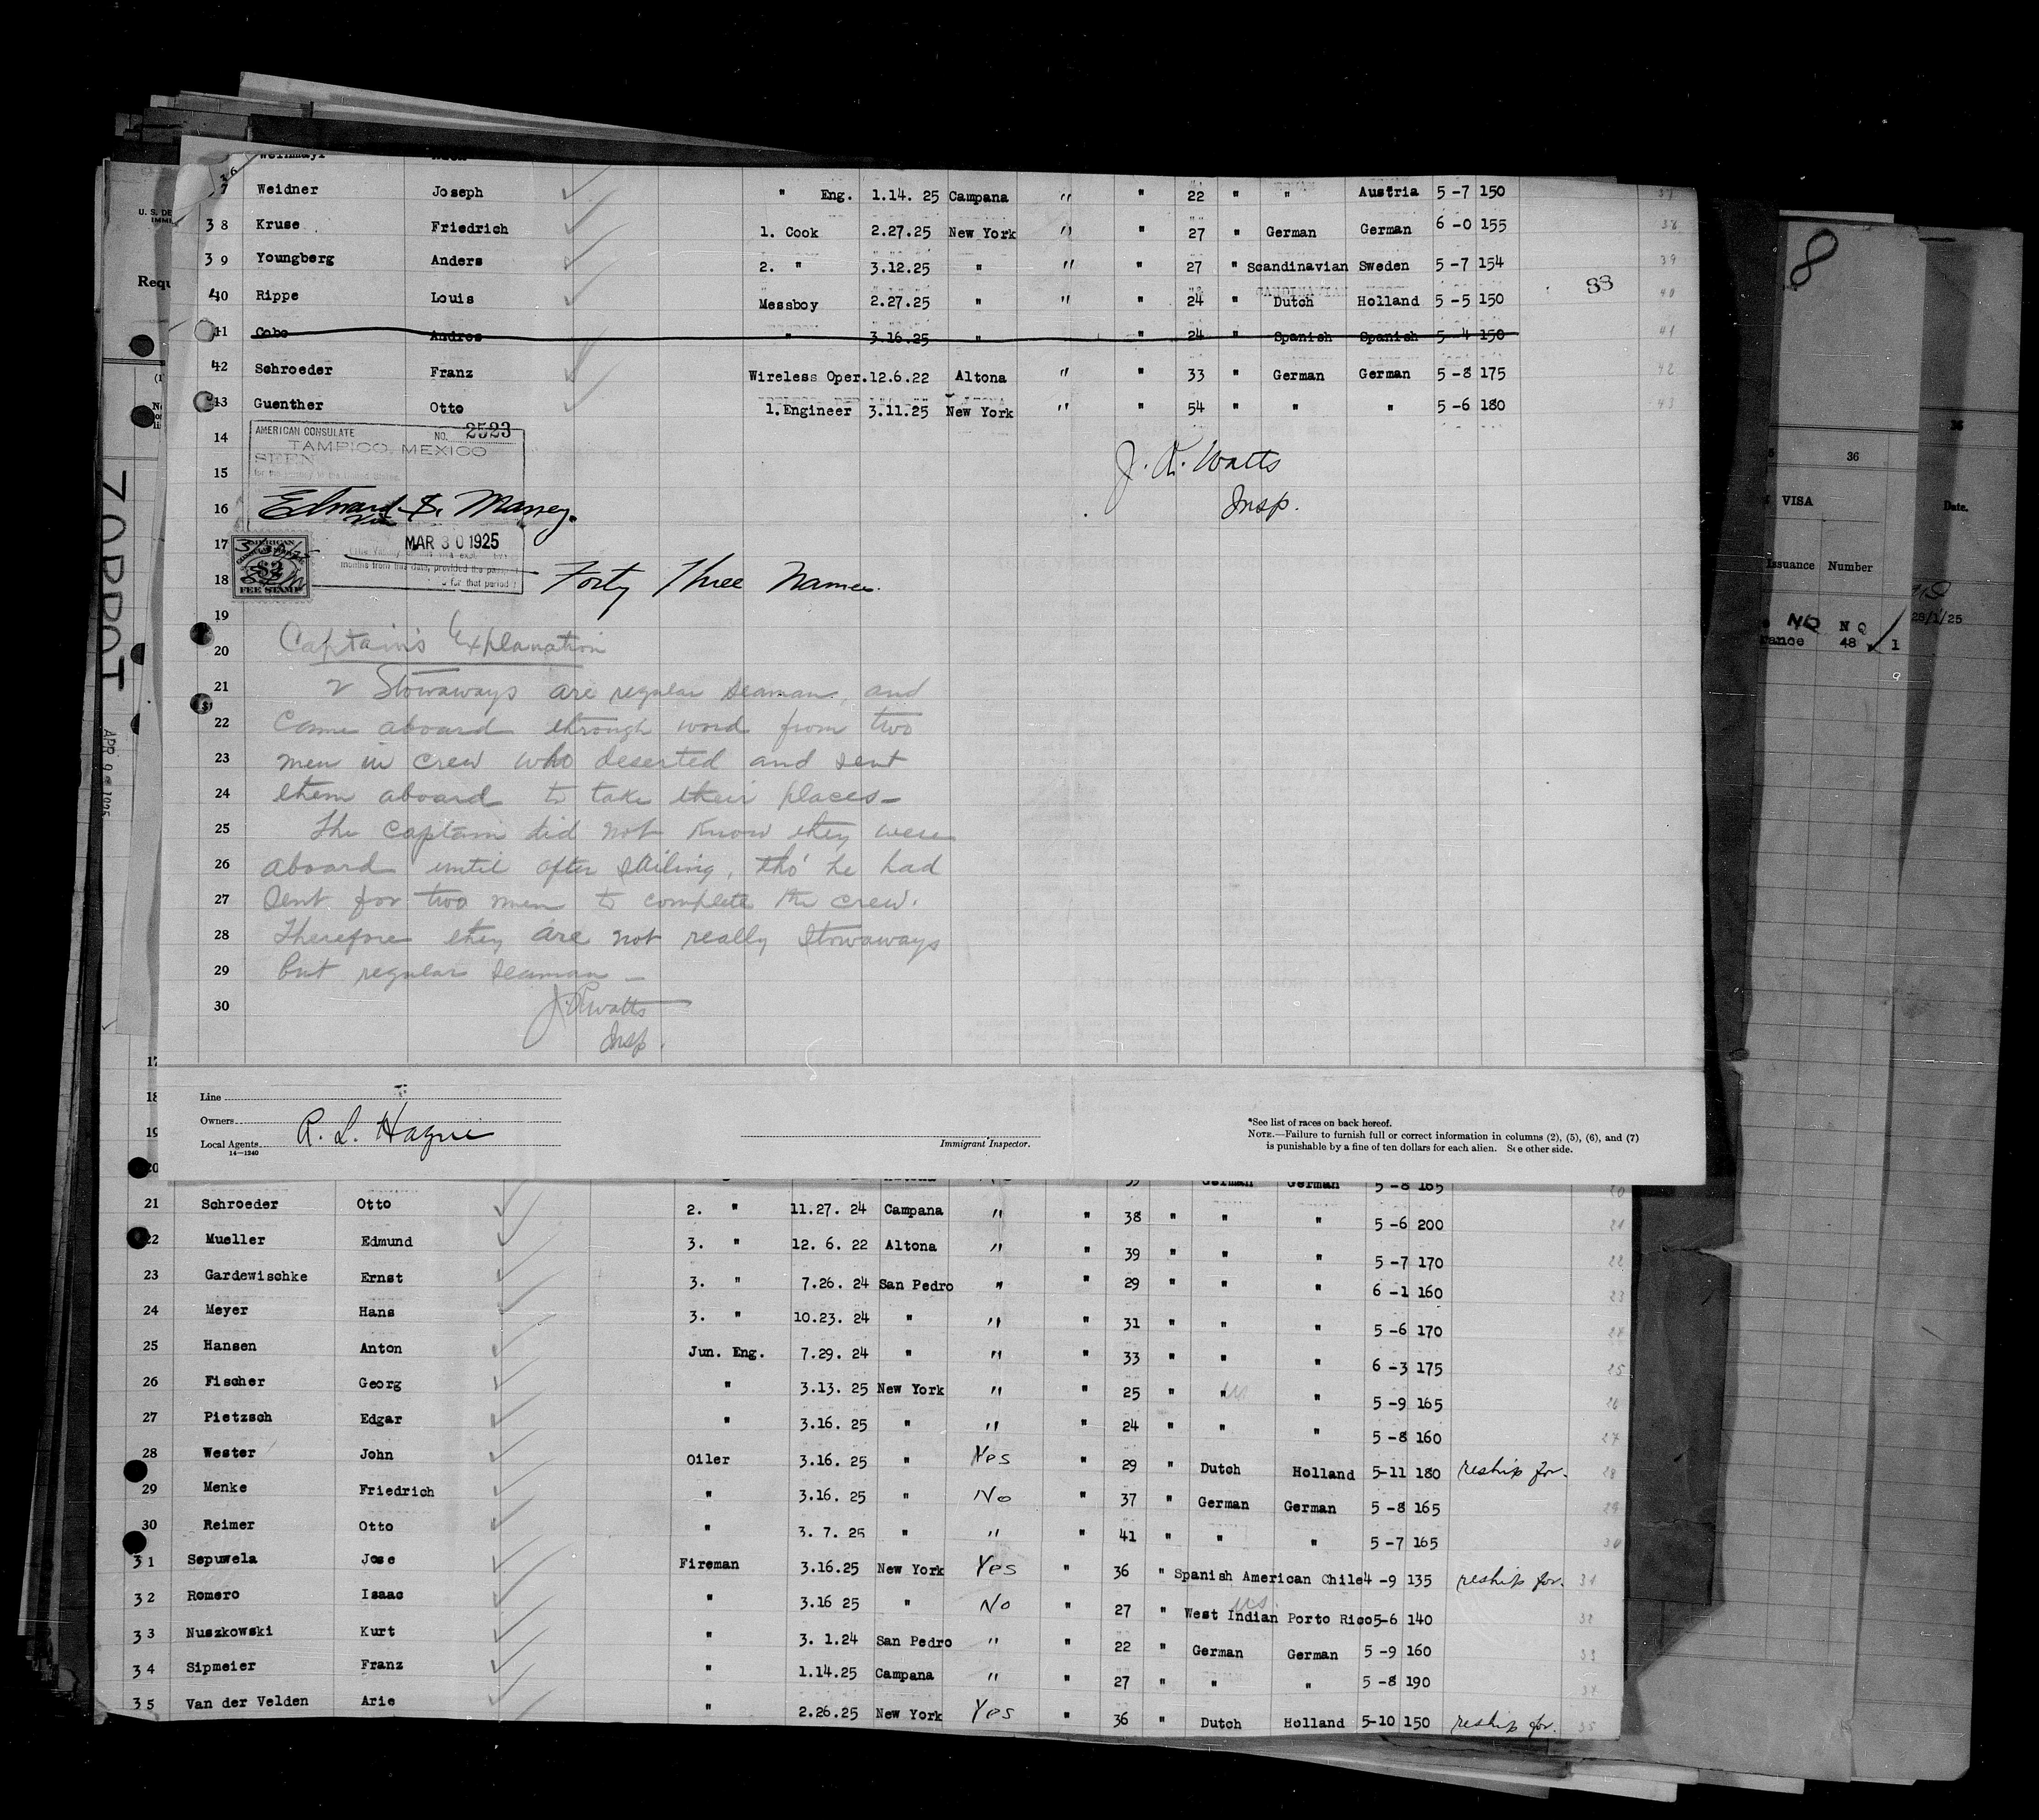 7 Weidner Joseph " Eng. 1.14. 25 Campana " " 22 " " Austria 5 -7 150 37
38 Kruse Friedrich 1. Cook 2.27.25 New York " " 27 " German German 6 -0 155 38
39 Youngberg Anders 2. " 3.12.25 " " " 27 " Scandinavian Sweden 5 -7 154 39
40 Rippe Louis Messboy 2.27.25 " " " 24 " Dutch Holland 5 -5 150 33 40
41 Cobo Andres " 3.16.25 " " 24 " Spanish Spanish 5 -4 150 41
42 Schroeder Franz Wireless Oper. 12.6.22 Altona " " 33 " German German 5 -8 175 42
43 Guenther Otto 1.Engineer 3.11.25 New York " " 54 " " " 5 -6 180 43
AMERICAN CONSULATE NO. 2523
14 TAMPICO, MEXICO
SEEN
15 J. R. Watts
16 Edward S. Massey. Insp.
17 MAR 30 1925
months from this date, provided the
for that period
FEE STAMP
18 Forty Three Names.
19
20 Captain's Explanation
21 2 Stowaways are regular seaman, and
22 came aboard through word from two
23 men in crew who deserted and sent
24 them aboard to take their places —
25 The Captain did not know they were
26 aboard until after sailing, tho' he had
27 sent for two men to complete the crew.
28 Therefore they are not really stowaways
29 but regular seaman —
30 J.R. Watts
Insp.
Line
Owners
Local Agents R. L. Hague
14—1240
Immigrant Inspector.
*See list of races on back hereof.
NOTE.—Failure to furnish full or correct information in columns (2), (5), (6), and (7)
is punishable by a fine of ten dollars for each alien. See other side.
17
18
19
20 German German 5 -8 165 20
21 Schroeder Otto 2. " 11.27. 24 Campana " " 38 " " " 5 -6 200 21
22 Mueller Edmund 3. " 12. 6. 22 Altona " " 39 " " " 5 -7 170 22
23 Gardewischke Ernst 3. " 7.26. 24 San Pedro " " 29 " " " 6 -1 160 23
24 Meyer Hans 3. " 10.23. 24 " " " 31 " " " 5 -6 170 24
25 Hansen Anton Jun. Eng. 7.29. 24 " " " 33 " " " 6 -3 175 25
26 Fischer Georg " 3.13. 25 New York " " 25 " " " 5 -9 165 26
27 Pietzsch Edgar " 3.16. 25 " " " 24 " " " 5 -8 160 27
28 Wester John Oiler 3.16. 25 " Yes " 29 " Dutch Holland 5-11 180 reship for. 28
29 Menke Friedrich " 3.16. 25 " No " 37 " German German 5 -8 165 29
30 Reimer Otto " 3. 7. 25 " " " 41 " " " 5 -7 165 30
31 Sepuwela Jose Fireman 3.16.25 New York Yes " 36 " Spanish American Chile 4 -9 135 reship for. 31
32 Romero Isaac " 3.16 25 " No " 27 " West Indian Porto Rico 5-6 140 32
33 Nuszkowski Kurt " 3. 1.24 San Pedro " " 22 " German German 5 -9 160 33
34 Sipmeier Franz " 1.14.25 Campana " " 27 " " " 5 -8 190 34
35 Van der Velden Arie " 2.26.25 New York Yes " 36 " Dutch Holland 5-10 150 reship for. 35
U. S. DE
IMMI
Requ
APR 9 - 1925
8
36
VISA
Date.
Issuance Number
28/1/25
NO NQ
rance 48 1